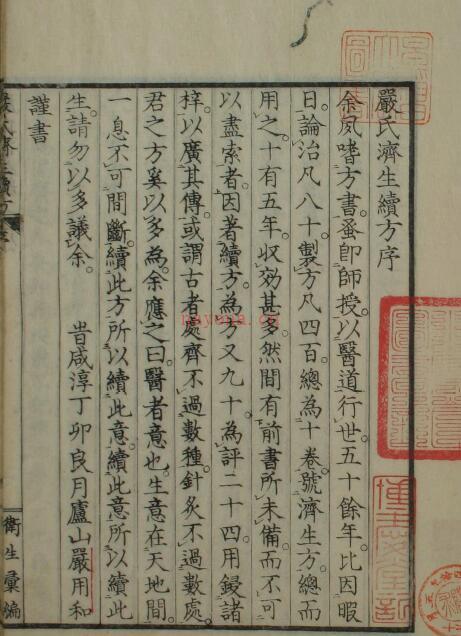 嚴氏濟生續方序
余夙嗜方書。蚤卽師授。以醫道行世。五十餘年。比因暇
日。論治凡八十。製方凡四百。總為十卷。號濟生方。總而
用之。十有五年。收効甚多。然間有前書所未備。而不可
以盡索者。因著續方。為方又九十。為評二十四。用鋟諸
梓。以廣其傳。或謂古者處齊不過數種。針炙不過數處。
君之方奚以多為。余應之曰。醫者意也。生意在天地間。
一息不可間斷。續此方所以續此意。續此意所以續此
生。請勿以多議余。 旹咸淳丁卯良月廬山嚴用和
謹書
衛生彙編